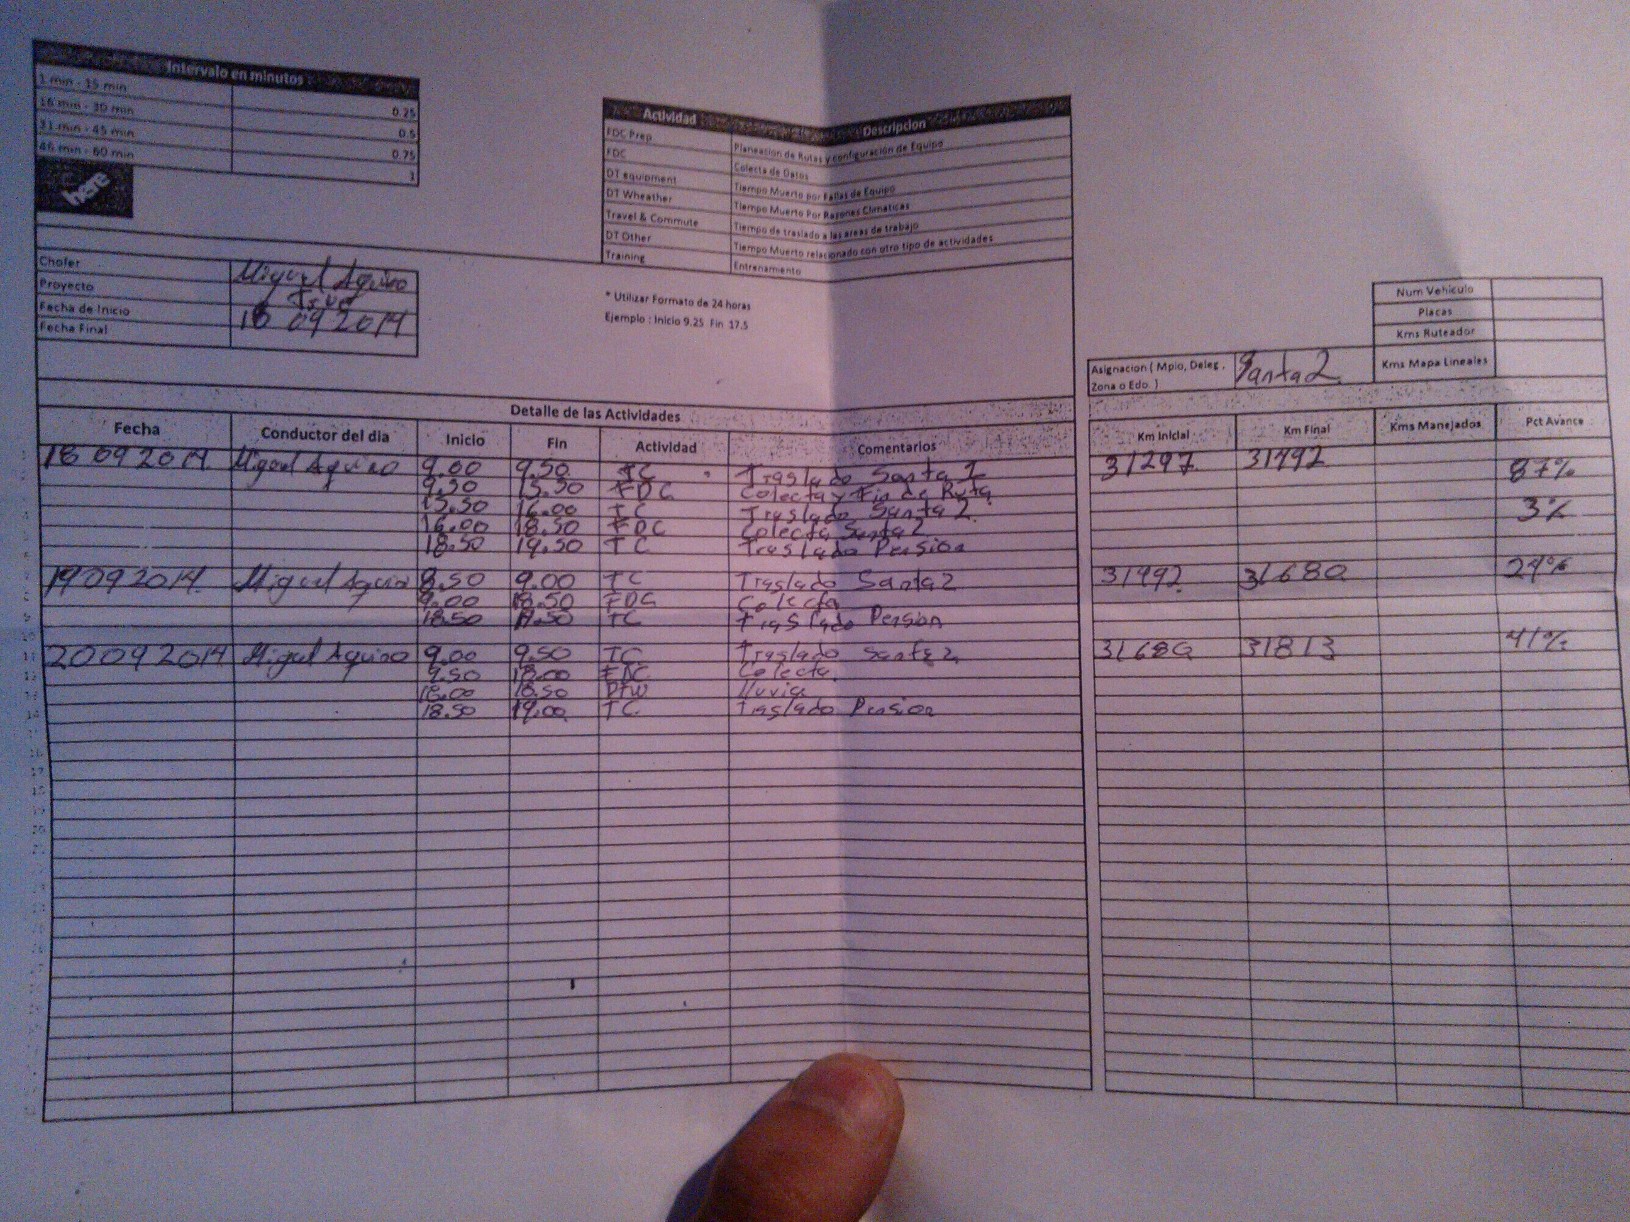 Intervalo en minutos
1 min - 15 min 0.25
16 min - 30 min 0.5
31 min - 45 min 0.75
46 min - 60 min 1
here
Actividad Descripcion
FDC Prep Planeacion de Rutas y configuracion de Equipo
FDC Colecta de Datos
DT equipment Tiempo Muerto por Fallas de Equipo
DT Wheather Tiempo Muerto Por Razones Climaticas
Travel & Commute Tiempo de traslado a las areas de trabajo
DT Other Tiempo Muerto relacionado con otro tipo de actividades
Training Entrenamiento
Chofer Miguel Aquino
Proyecto
Fecha de Inicio 18 09 2014
Fecha Final
* Utilizar Formato de 24 horas
Ejemplo : Inicio 9.25 Fin 17.5
Num Vehiculo
Placas
Kms Ruteador
Kms Mapa Lineales
Asignacion ( Mpio, Deleg , Zona o Edo. ) Santa 2
Detalle de las Actividades
Fecha Conductor del dia Inicio Fin Actividad Comentarios Km Inicial Km Final Kms Manejados Pct Avance
18 09 2014 Miguel Aquino 9.00 9.50 TC Traslado Santa 1 31297 31492 87%
9.50 15.50 FDC Colecta y Fin de Ruta
15.50 16.00 TC Traslado Santa 2 3%
16.00 18.50 FDC Colecta Santa 2
18.50 19.50 TC Traslado Pension
19 09 2014 Miguel Aquino 8.50 9.00 TC Traslado Santa 2 31492 31680 24%
9.00 18.50 FDC Colecta
18.50 19.50 TC Traslado Pension
20 09 2014 Miguel Aquino 9.00 9.50 TC Traslado Santa 2 31680 31813 41%
9.50 18.00 FDC Colecta
18.00 18.50 DTW lluvia
18.50 19.00 TC Traslado Pension